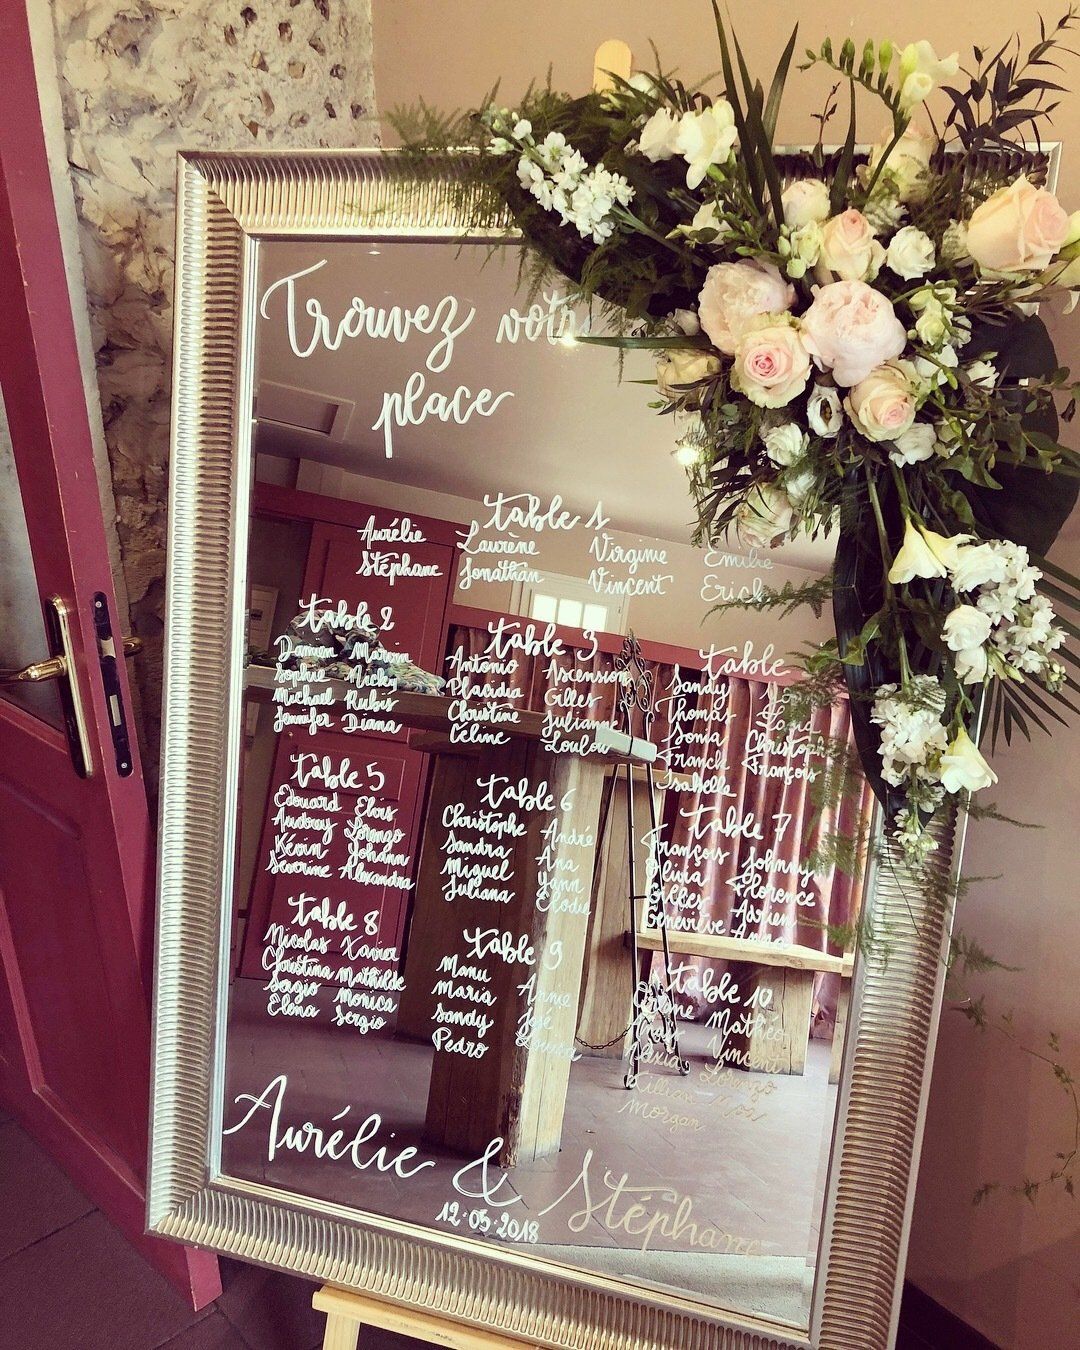 Trouvez votre
place
table 1
Aurélie Laurène Virginie Emilie
Stéphane Jonathan Vincent Erick
table 2
Damien Marvin
Sophie Nicky
Michael Rubis
Jennifer Diana
table 3
Antonio Ascension
Placidia Gilles
Christine Julianne
Céline Loulou
table
Sandy
Thomas
Sonia Christophe
Franck François
Isabelle
table 5
Edouard Eloïs
Audrey Lorenzo
Kévin Johann
Séverine Alexandra
table 6
Christophe André
Sandra Ana
Miguel Yann
Juliana Elodie
table 7
François Johnny
Olivia Florence
Gilles Adrien
Geneviève Anna
table 8
Nicolas Xavier
Christina Mathilde
Sergio Monica
Elena Sergio
table 9
Manu
Maria Anne
Sandy José
Pedro Louison
table 10
Mathéo
Vincent
Alexia Lorenzo
Lilian Noa
Morgan
Aurélie & Stéphane
12.05.2018